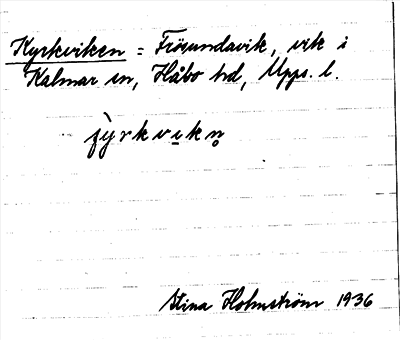 Kyrkviken = Frösundavik, vik i
Kalmar sn, Håbo hd, Upps. l.
jy̆rkvi̠kn̥
Stina Holmström 1936